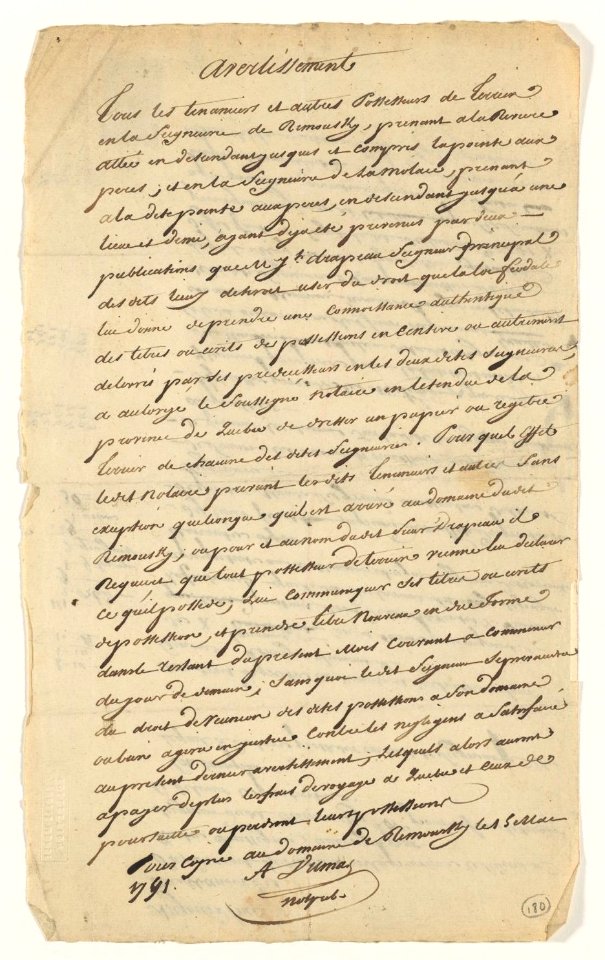 Avertissement
Tous les tenanciers et autres Possesseurs de terrein
en la Seigneurie de Remousky, prenant a la Riviere
Attée en descendant jusques et compris la pointe aux
peres; et en la Seigneurie de la Molaie, prenant
a la dite pointe aux peres, en descendant jusqu'à une
lieue et demie, ayant deja été prevenus par deux
publications, que M. Jh. drapeau Seigneur principal
des dits lieux desiroit user du droit que la loi feodale
lui donne de prendre une Connoissance authentique
des titres ou ecrits de possessions en Censive ou autrement
delivrés par ses predecesseurs en les deux dites Seigneuries,
a autorisé le Soussigné Notaire en l'etendue de la
province de Quebec de dresser un papier ou registre
terrier de chacune des dites Seigneuries. Pour quel Effet
le dit Notaire previent les dits tenanciers et autres Sans
exception quelconque qu'il est arrivé au domaine du dit
Remousky, ou pour et au nom du dit Sieur Drapeau il
Requiert que tout possesseur de terrein vienne lui declarer
ce qu'il possede, lui communiquer ses titres ou ecrits
de possession, et prendre titre Nouveau en due Forme
dans le restant du present Mois Courant a Commencer
du jour de demain; Sans quoi le dit Seigneur
du droit de reunion des dites possessions a Son domaine
ou bien agira en justice Contre les negligens a Satisfaire
au present dernier avertissement, lesquels alors auront
a payer de plus les frais de voyage a Quebec et Ceux de
poursuite ou perdront leurs possessions
Pour Copie au domaine de Remousky le 15 Mai
1791. A Dumas
Not. pub.
180